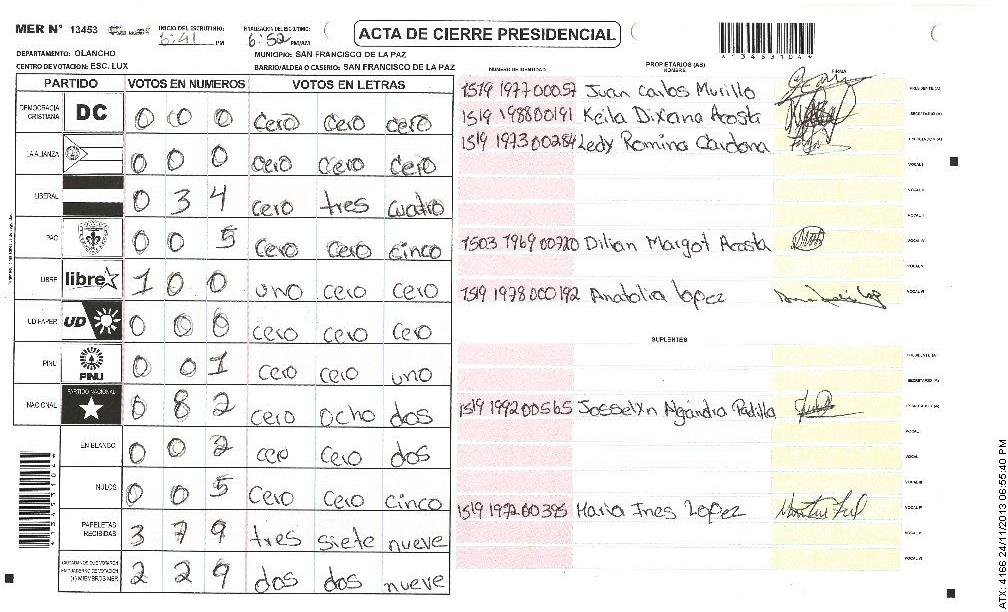 MER N° 13453
INICIO DEL ESCRUTINIO: 6:41 PM
FINALIZACION DEL ESCRUTINIO: 6:52 PM/AM
ACTA DE CIERRE PRESIDENCIAL
*13453104*
DEPARTAMENTO: OLANCHO
MUNICIPIO: SAN FRANCISCO DE LA PAZ
CENTRO DE VOTACION: ESC. LUX
BARRIO/ALDEA O CASERIO: SAN FRANCISCO DE LA PAZ
PARTIDO VOTOS EN NUMEROS VOTOS EN LETRAS
DEMOCRACIA CRISTIANA DC 0 0 0 cero cero cero
LA ALIANZA 0 0 0 cero cero cero
LIBERAL 0 3 4 cero tres cuatro
PAC 0 0 5 cero cero cinco
LIBRE libre 1 0 0 uno cero cero
UD FAPER UD 0 0 0 cero cero cero
PINU PINU 0 0 1 cero cero uno
NACIONAL PARTIDO NACIONAL 0 8 2 cero ocho dos
EN BLANCO 0 0 2 cero cero dos
NULOS 0 0 5 cero cero cinco
PAPELETAS RECIBIDAS 3 7 9 tres siete nueve
CIUDADANOS QUE VOTARON EN CUADERNO DE VOTACION (+) MIEMBROS MER 2 2 9 dos dos nueve
*13453104*
NUMERO DE IDENTIDAD PROPIETARIOS (AS) NOMBRE FIRMA
1519 1977 00057 Juan Carlos Murillo PRESIDENTE (A)
1519 1988 00191 Keila Dixiana Acosta SECRETARIO (A)
1519 1973 00284 Ledy Romina Cardona ESCRUTADOR (A)
VOCAL I
VOCAL II
VOCAL III
1503 1969 00720 Dilian Margot Acosta VOCAL IV
VOCAL V
1519 1978 000192 Anatolia lopez VOCAL VI
SUPLENTES
PRESIDENTE (A)
SECRETARIO (A)
1519 1992 00565 Josselyn Alejandra Padilla ESCRUTADOR (A)
VOCAL I
VOCAL II
VOCAL III
1519 1972 00395 Maria Ines Lopez VOCAL IV
VOCAL V
VOCAL VI
ATX: 4166 24/11/2013 06:55:40 PM